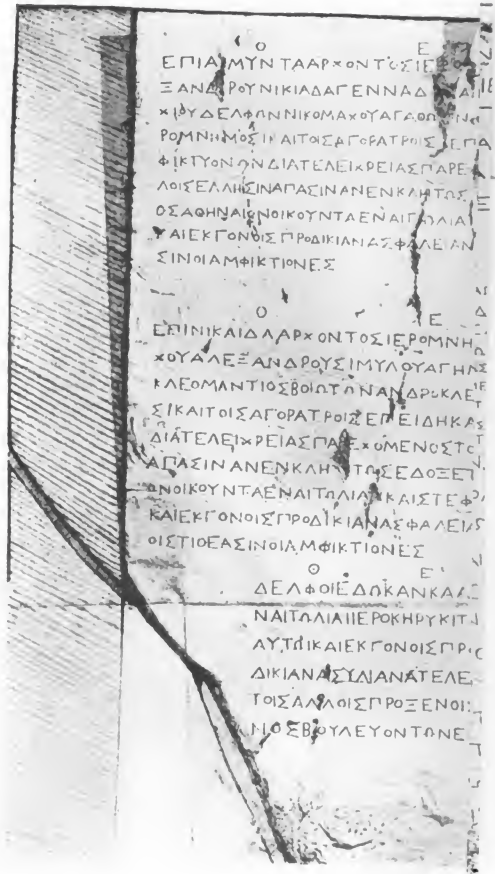 Ο Ε
ΕΠΙΑΜΥΝΤΑΑΡΧΟΝΤΟΣΙΕΡΟ
ΞΑΝΔΡΟΥΝΙΚΙΑΔΑΓΕΝΝΑΔΑ
ΧΙΟΥΔΕΛΦΩΝΝΙΚΟΜΑΧΟΥΑΓΑΘΩΝ
ΡΟΜΝΗΜΟΣΙΚΑΙΤΟΙΣΑΓΟΡΑΤΡΟΙΣΕΠ
ΦΙΚΤΥΟΝΩΝΔΙΑΤΕΛΕΙΧΡΕΙΑΣΠΑΡΕ
ΛΟΙΣΕΛΛΗΣΙΝΑΠΑΣΙΝΑΝΕΝΚΛΗΤΩΣ
ΟΣΑΘΗΝΑΙΟΝΟΙΚΟΥΝΤΑΕΝΑΙΤΩΛΙΑ
ΚΑΙΕΚΓΟΝΟΙΣΠΡΟΔΙΚΙΑΝΑΣΦΑΛΕΙΑΝ
ΣΙΝΟΙΑΜΦΙΚΤΙΟΝΕΣ
Ο Ε
ΕΠΙΝΙΚΑΙΔΑΑΡΧΟΝΤΟΣΙΕΡΟΜΝΗ
ΧΟΥΑΛΕΞΑΝΔΡΟΥΣΙΜΥΛΟΥΑΓΗΝ
ΚΛΕΟΜΑΝΤΙΟΣΒΟΙΩΤΩΝΑΝΔΡΟΚΛΕ
ΣΙΚΑΙΤΟΙΣΑΓΟΡΑΤΡΟΙΣΕΠΕΙΔΗΚΑ
ΔΙΑΤΕΛΕΙΧΡΕΙΑΣΠΑΡΕΧΟΜΕΝΟΣΤΟ
ΑΠΑΣΙΝΑΝΕΝΚΛΗΤΩΣΕΔΟΞΕΤ
ΩΝΟΙΚΟΥΝΤΑΕΝΑΙΤΩΛΙΑΙΚΑΙΣΤΕΦ
ΚΑΙΕΚΓΟΝΟΙΣΠΡΟΔΙΚΙΑΝΑΣΦΑΛΕΙΑ
ΟΙΣΤΙΘΕΑΣΙΝΟΙΑΜΦΙΚΤΙΟΝΕΣ
Θ Ε
ΔΕΛΦΟΙΕΔΩΚΑΝΚΑΛ
ΝΑΙΤΩΛΙΑΙΙΕΡΟΚΗΡΥΚΙΤ
ΑΥΤΩΙΚΑΙΕΚΓΟΝΟΙΣΠΡΟ
ΔΙΚΙΑΝΑΣΥΛΙΑΝΑΤΕΛΕ
ΤΟΙΣΑΛΛΟΙΣΠΡΟΞΕΝΟΙ
ΝΟΣΒΟΥΛΕΥΟΝΤΩΝΕ